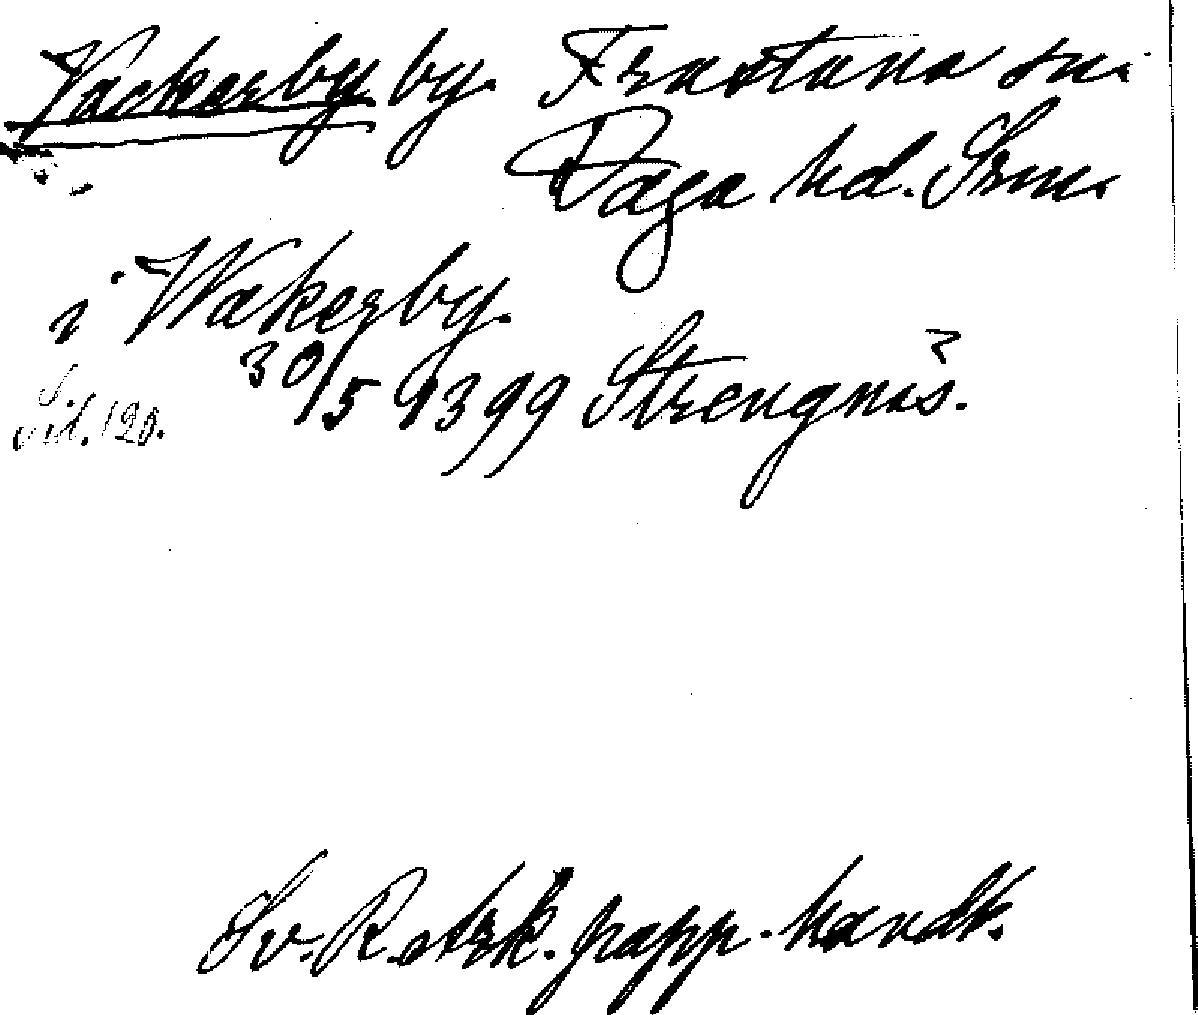 Vackerby by. Frustuna sn.
Daga hd. Srm.
i Wakerby.
30/5 1399 Strengnäs.
Sil. 120.
Sv. R. etrk. papp. handk.